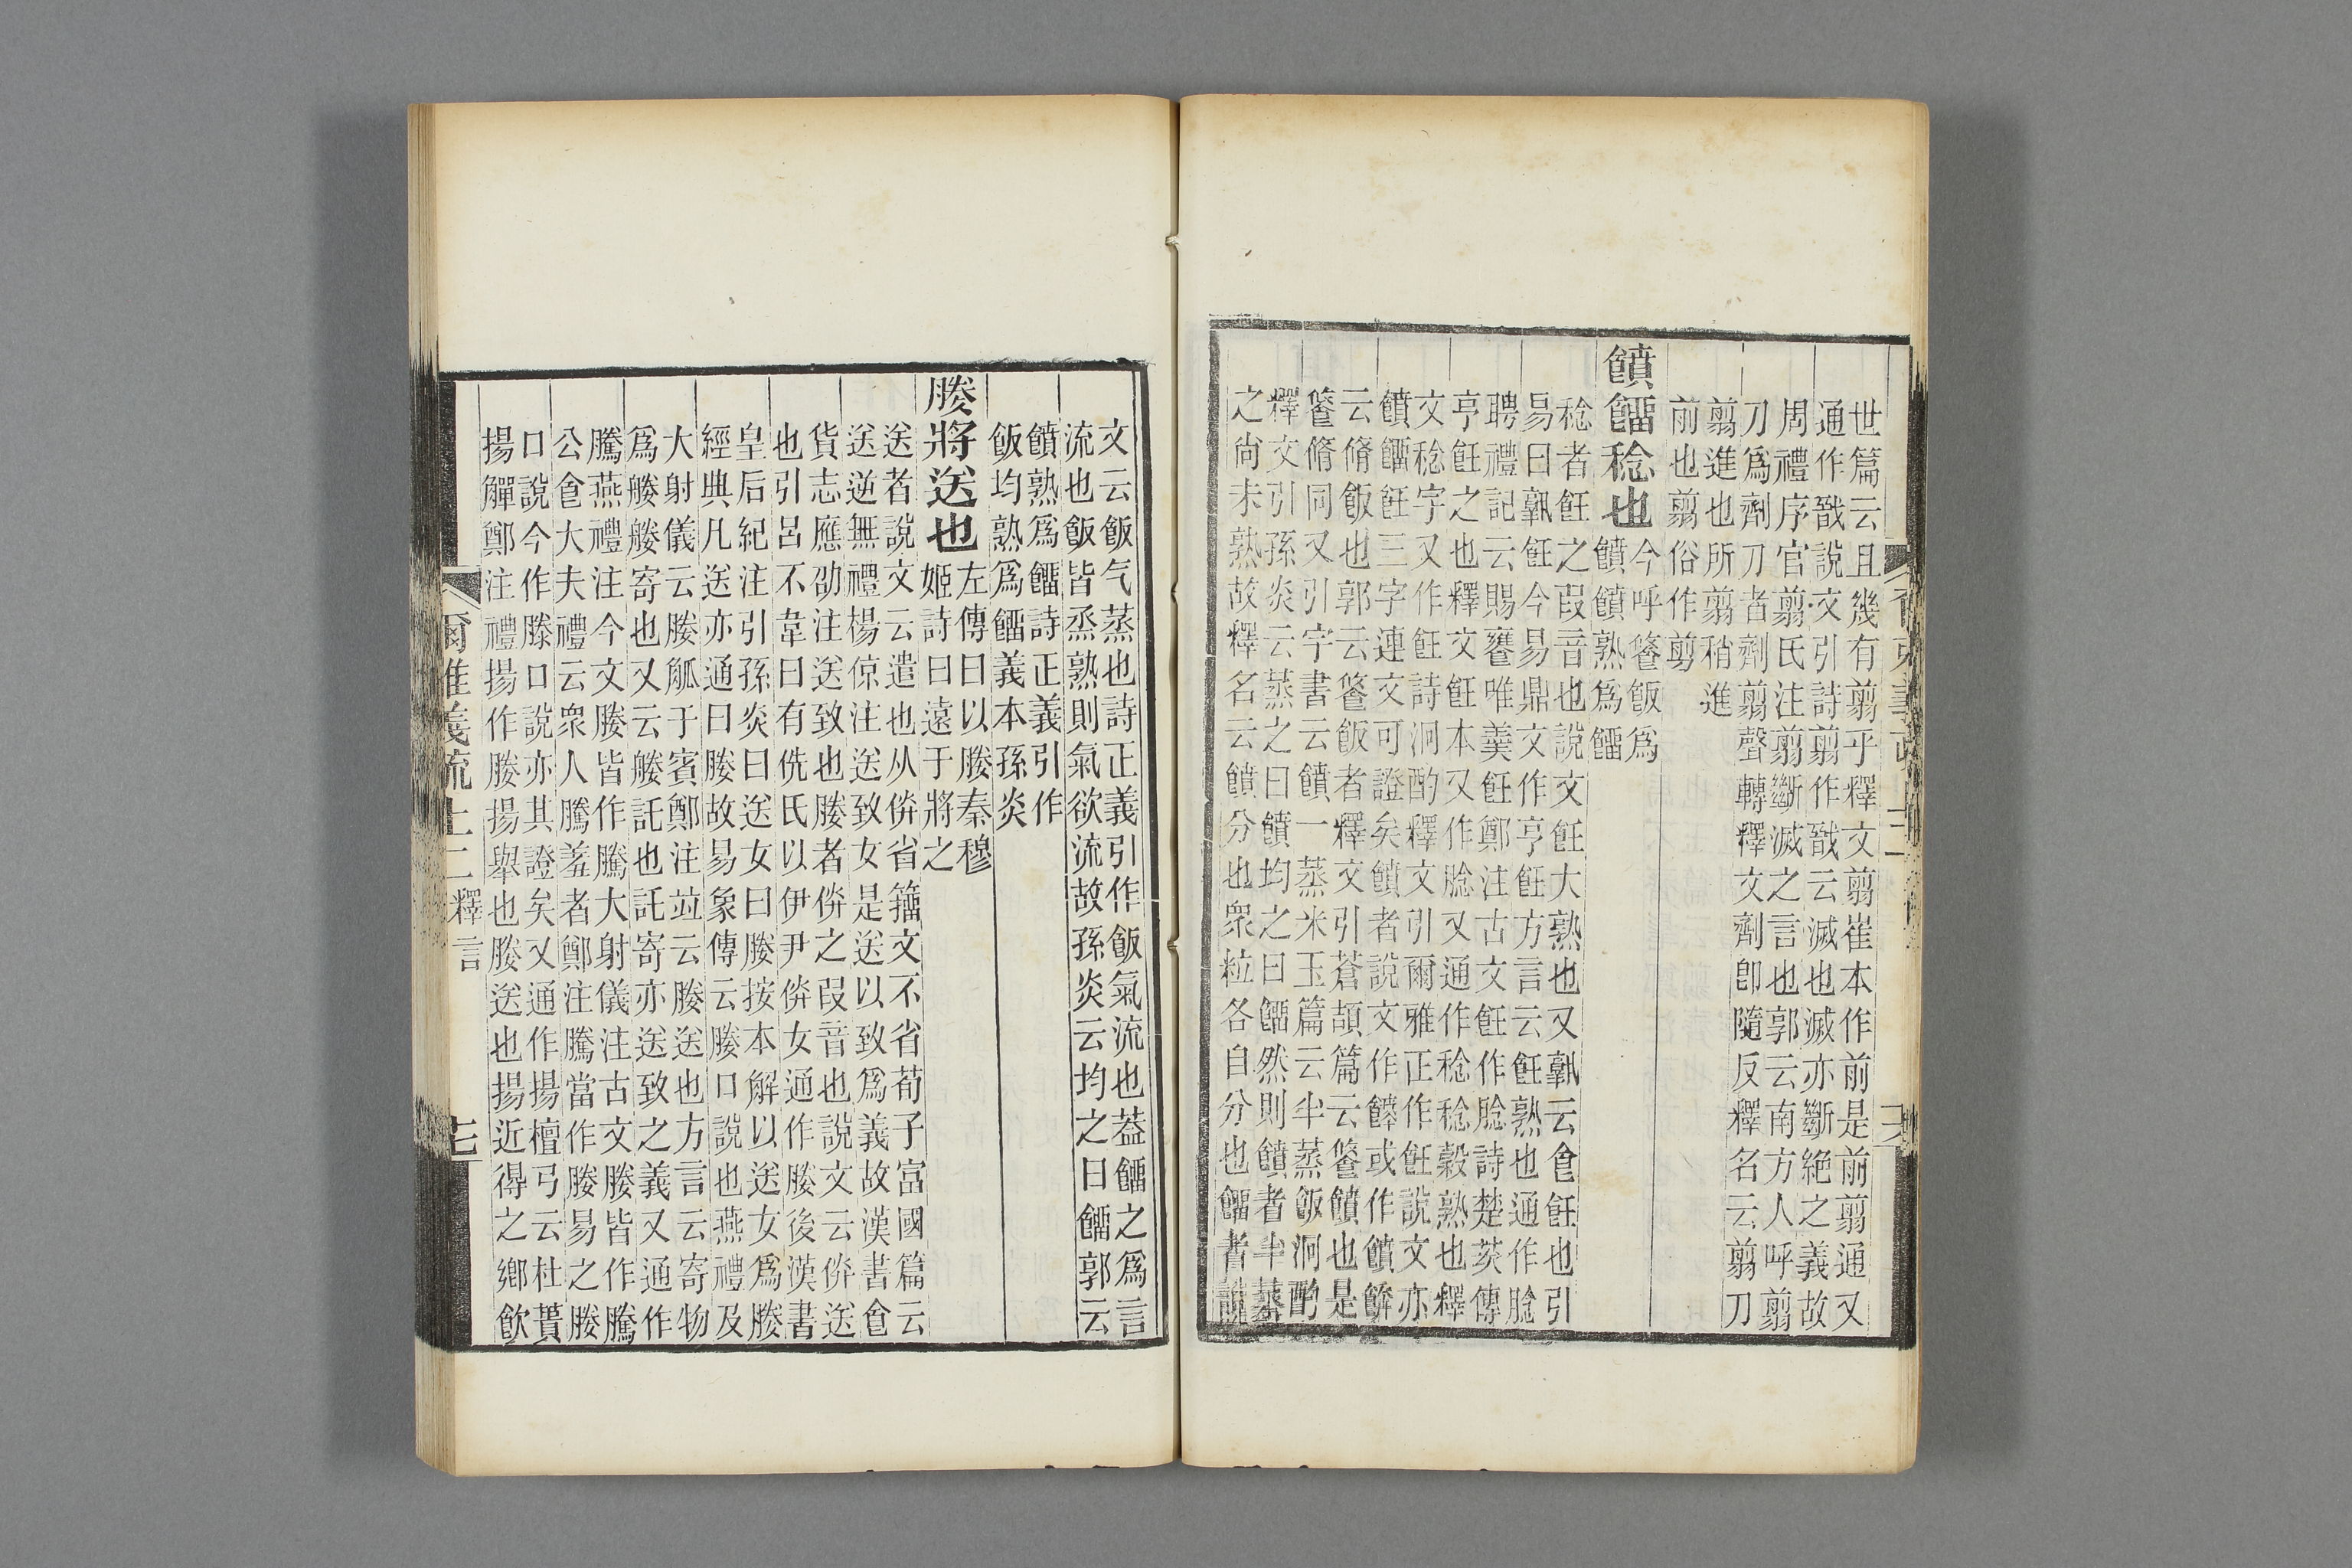 世篇云且幾有翦乎釋文翦崔本作前是前翦通又
通作戩說文引詩翦作戩云滅也滅亦斷絶之義故
周禮序官翦氏注翦斷滅之言也郭云南方人呼翦
刀爲劑刀者劑翦聲轉釋文劑卽隨反釋名云翦刀
翦進也所翦稍進
前也翦俗作剪
饙餾稔也
今呼餐飯爲
饙饙熟爲餾
稔者飪之叚音也說文飪大熟也又孰云食飪也引
易曰孰飪今易鼎文作亨飪方言云飪熟也通作腍
聘禮記云賜饔唯羹飪鄭注古文飪作腍詩楚茨傳
亨飪之也釋文飪本又作腍又通作稔稔穀熟也釋
文稔字又作飪詩泂酌釋文引爾雅正作飪說文亦
饙餾飪三字連文可證矣饙者說文作餴或作饙餴
云脩飯也郭云餐飯者釋文引蒼頡篇云餐饙也是
餐脩同又引字書云饙一蒸米玉篇云半蒸飯泂酌
釋文引孫炎云蒸之曰饙均之曰餾然則饙者半蒸
之尚未熟故釋名云饙分也衆粒各自分也餾者說
文云飯气蒸也詩正義引作飯氣流也葢餾之爲言
流也飯皆烝熟則氣欲流故孫炎云均之曰餾郭云
饙熟爲餾詩正義引作
飯均熟爲餾義本孫炎
媵將送也
左傳曰以媵秦穆
姬詩曰遠于將之
送者說文云遣也从倴省籀文不省荀子富國篇云
送逆無禮楊倞注送致女是送以致爲義故漢書食
貨志應劭注送致也媵者倴之叚音也說文云倴送
也引呂不韋曰有侁氏以伊尹倴女通作媵後漢書
皇后紀注引孫炎曰送女曰媵按本解以送女爲媵
經典凡送亦通曰媵故易象傳云媵口說也燕禮及
大射儀云媵觚于賓鄭注竝云媵送也方言云寄物
爲艐艐寄也又云艐託也託寄亦送致之義又通作
騰燕禮注今文媵皆作騰大射儀注古文媵皆作騰
公食大夫禮云衆人騰羞者鄭注騰當作媵易之媵
口說今作滕口說亦其證矣又通作揚檀弓云杜蕢
揚觶鄭注禮揚作媵揚舉也媵送也揚近得之鄉飲
爾雅義疏上二釋言